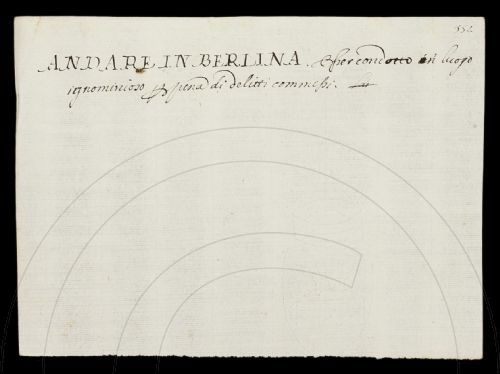 ANDARE IN BERLINA. Esser condotto in luogo
ignominioso p pena di delitti commessi.